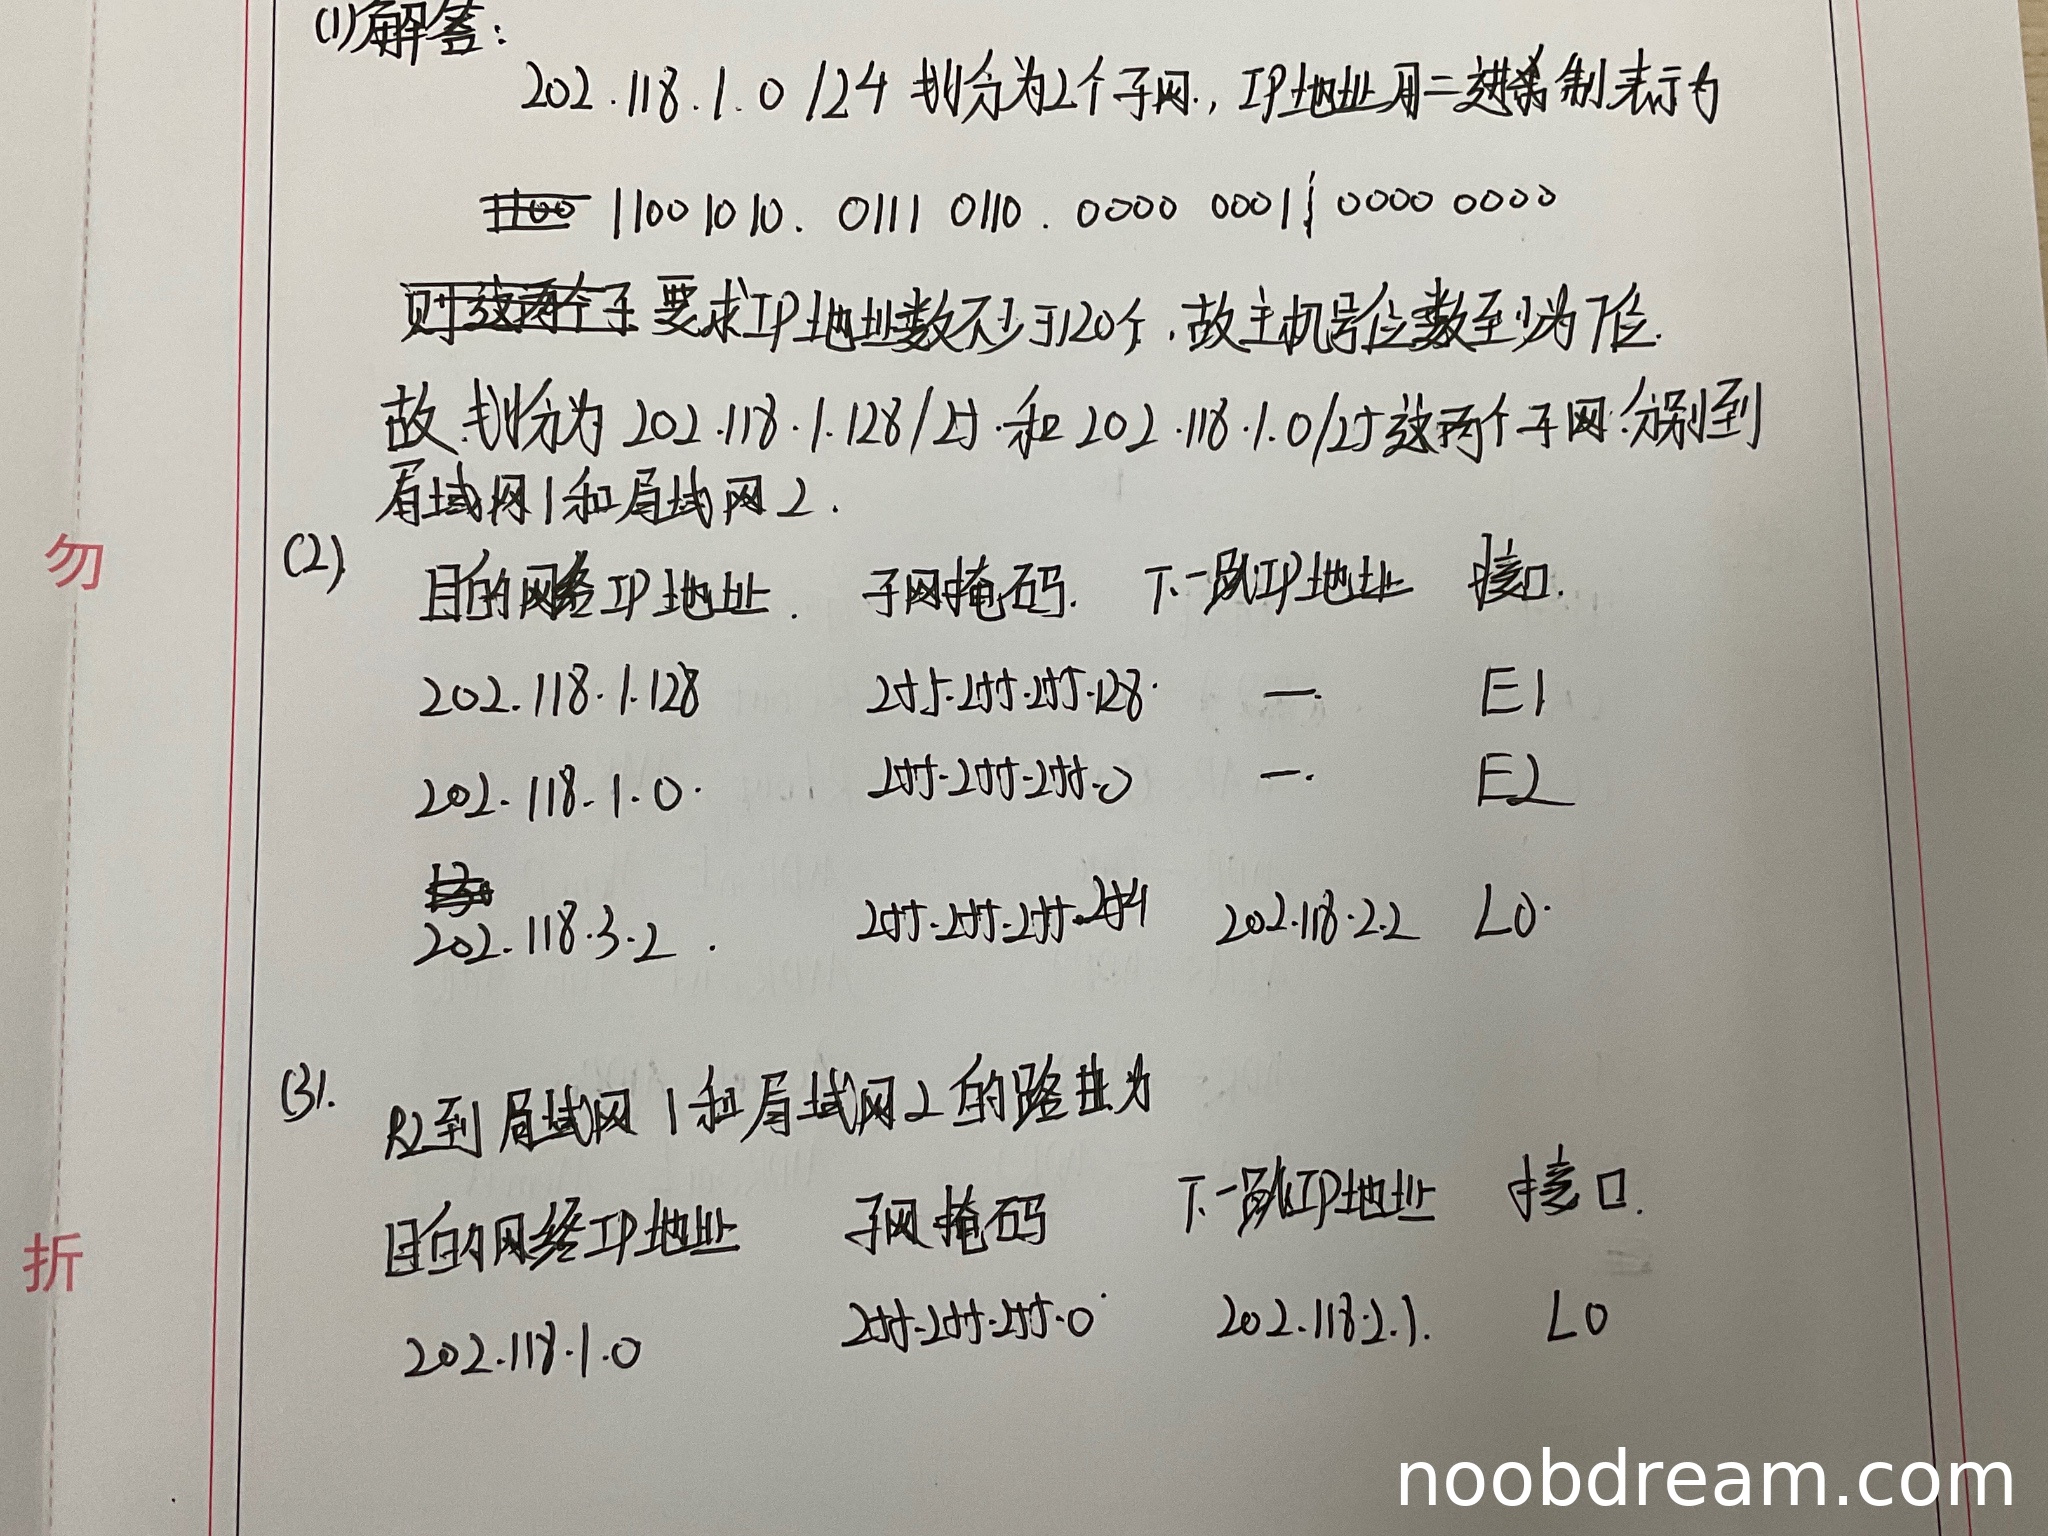 (1)解答:
202.118.1.0/24 划分为2个子网, IP地址用二进制表示为
1100 1010. 0111 0110. 0000 0001 | 0000 0000
则这两个子 要求IP地址数不少于120个,故主机号位数至少为7位.
故划分为 202.118.1.128/25 和 202.118.1.0/25 这两个子网.分别到
局域网1和局域网2.
(2)
目的网络IP地址. 子网掩码. 下一跳IP地址 接口.
202.118.1.128 255.255.255.128. — E1
202.118.1.0. 255.255.255.0 — E2
202.118.3.2. 255.255.255.254 202.118.2.2 L0.
(3).
R2到局域网1和局域网2的路由为
目的网络IP地址 子网掩码 下一跳IP地址 接口.
202.118.1.0 255.255.255.0 202.118.2.1. L0
勿
折
noobdream.com